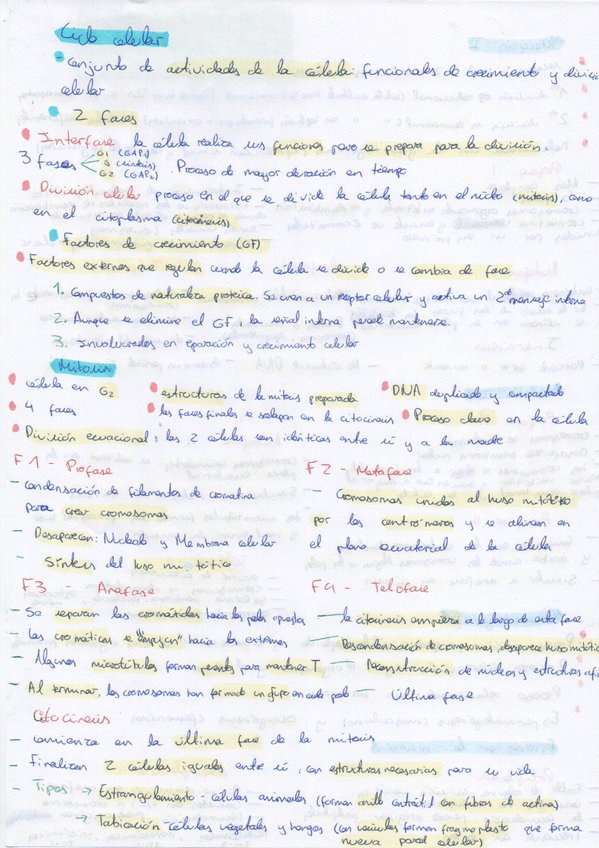 Ciclo celular
- Conjunto de actividades de la célula: funcionales de crecimiento y división
celular
2 fases
Interfase la célula realiza sus funciones para se prepara para la división
3 fases G1 (GAP1)
S (síntesis)
G2 (GAP2) . Proceso de mayor duración en tiempo
División celular proceso en el que se divide la célula tanto en el núcleo (mitosis), como
en el citoplasma (citocinesis)
Factores de crecimiento (GF)
Factores externos que regulan cuando la célula se divide o se cambia de fase
1. Compuestos de naturaleza proteica. Se unen a un receptor celular y activa un 2º mensaje interno
2. Aunque se elimine el GF, la señal interna puede mantenerse.
3. Involucrados en reparación y crecimiento celular
Mitosis
célula en G2 estructuras de la mitosis preparada DNA duplicado y empactado
4 fases las fases finales se solapan en la citocinesis Proceso clave en la célula
División ecuacional: las 2 células son idénticas entre sí y a la madre
F1 - Profase
- Condensación de filamentos de cromatina
para crear cromosomas
- Desaparecen: Nucleolo y Membrana celular
- Síntesis del huso mitótico
F2 - Metafase
- Cromosomas unidos al huso mitótico
por los centrómeros y se alinean en
el plano ecuatorial de la célula
F3 - Anafase
- Se separan las cromátidas hacia los polos opuestos
- Las cromáticas se "empujan" hacia los extremos
- Algunos microtúbulos forman puentes para mantener T
- Al terminar, los cromosomas han formado un grupo en cada polo
F4 - Telofase
- la citocinesis empieza a lo largo de esta fase
- Descondensación de cromosomas, desaparece huso mitótico
- Reconstrucción de núcleos y estructuras
- Última fase
Citocinesis
- comienza en la última fase de la mitosis
- Finalizan 2 células iguales entre sí, con estructuras necesarias para su vida
- Tipos → Estrangulamiento - células animales (forman anillo contráctil con fibras de actina)
→ Tabicación - células vegetales y hongos (con vesículas forman fragmoplasto que forma
nueva pared celular)